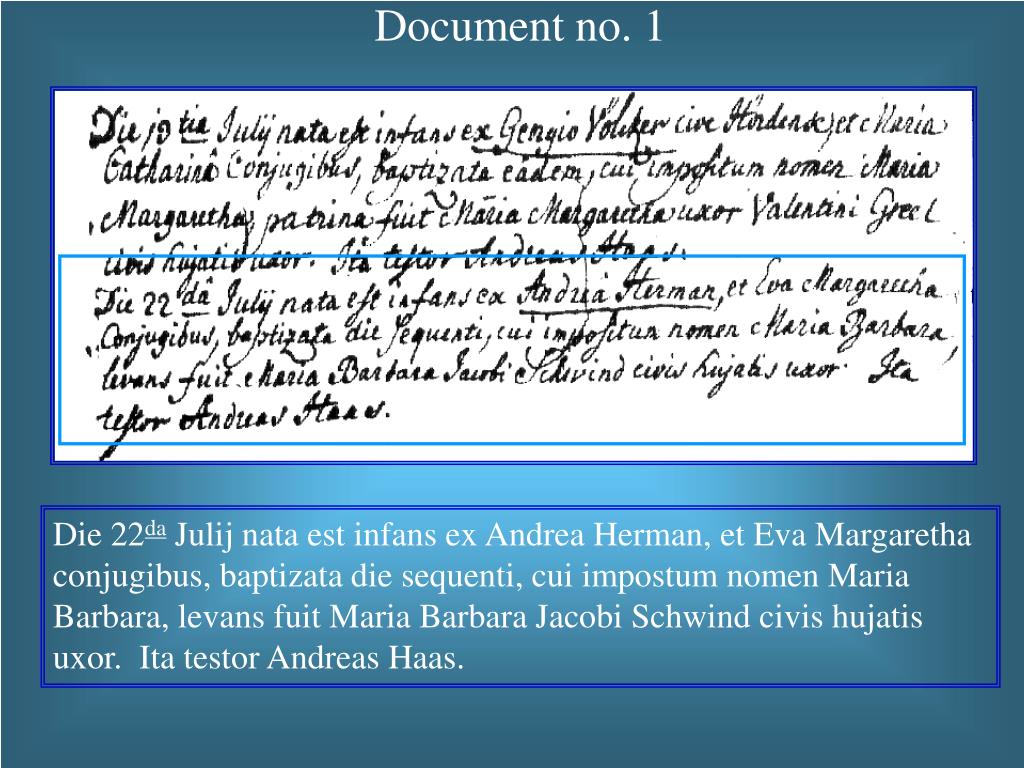 Document no. 1
Die 13 tia Julij nata est infans ex Georgio Volcker cive Hördense, et Maria
Catharinâ Conjugibus, baptizata eadem, cui impositum nomen Maria
Margaretha, patrina fuit Maria Margaretha uxor Valentini Greel
civis hujatis uxor. Ita testor Andreas Haas.
Die 22 dâ Julij nata est infans ex Andreâ Herman, et Eva Margaretha
Conjugibus, baptizata die sequenti, cui impositum nomen Maria Barbara,
levans fuit Maria Barbara Jacobi Schwind civis hujatis uxor. Ita
testor Andreas Haas.
Die 22da Julij nata est infans ex Andrea Herman, et Eva Margaretha
conjugibus, baptizata die sequenti, cui impostum nomen Maria
Barbara, levans fuit Maria Barbara Jacobi Schwind civis hujatis
uxor. Ita testor Andreas Haas.